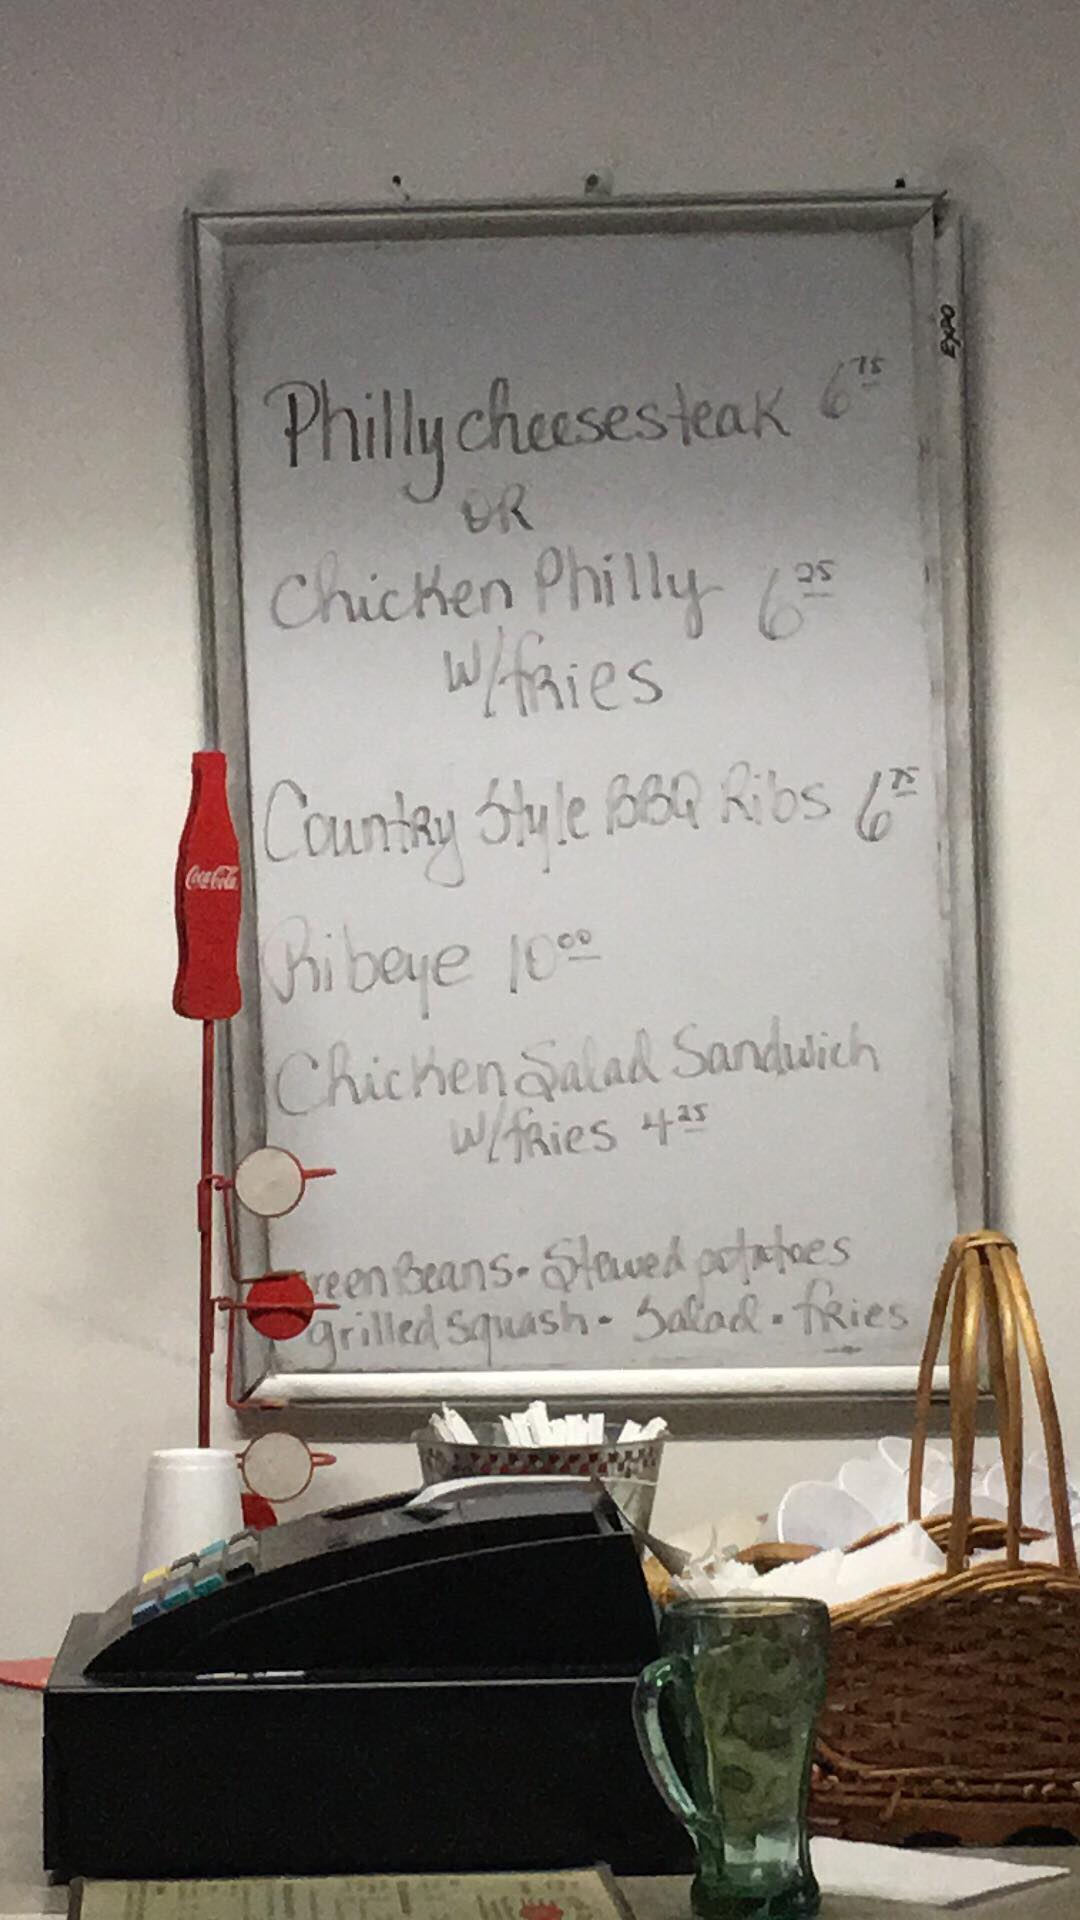 EXPO
Phillycheesesteak 6 75
OR
Chicken Philly 6 25
W/fries
Country Style BBQ Ribs 6 75
Coca-Cola
Ribeye 10 00
Chicken Salad Sandwich
W/fries 4 25
reen Beans - Stewed potatoes
grilled squash - Salad - fries